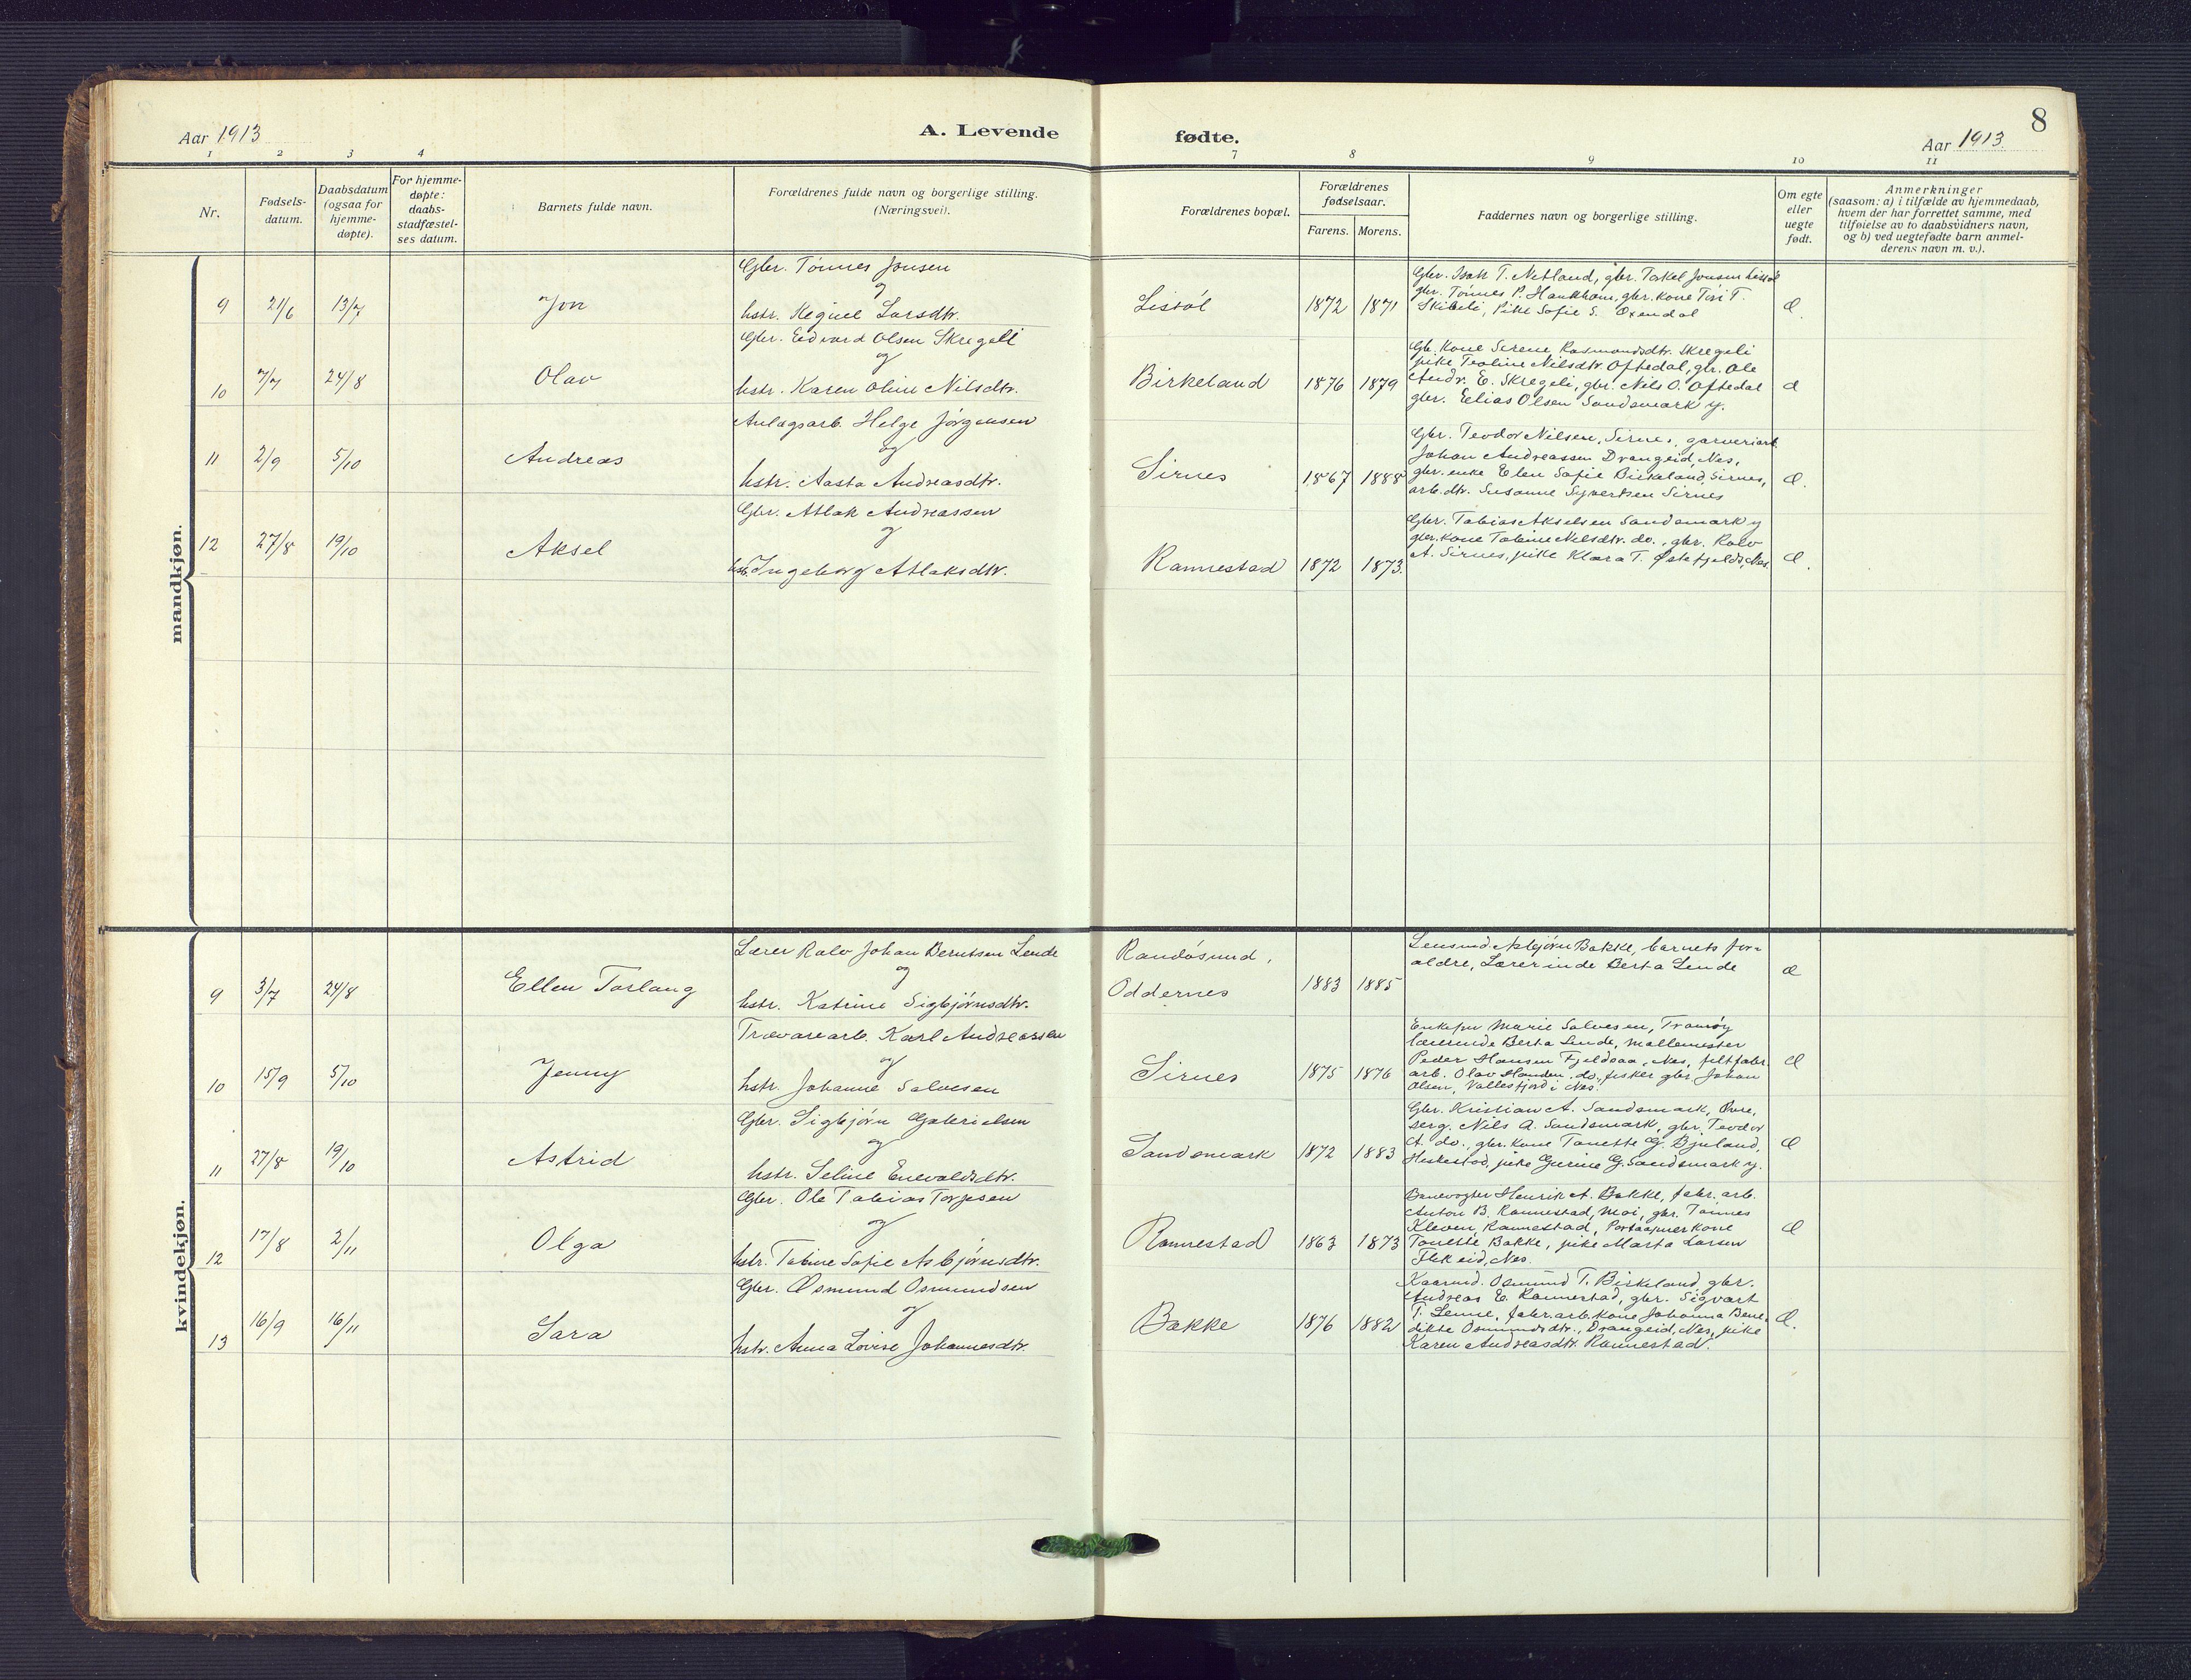 8
Aar 1913
A. Levende
fødte.
Aar 1913
1 2 3 4
7 8 9 10 11
Nr.
Fødsels-
datum.
Daabsdatum
(ogsaa for
hjemme-
døpte).
For hjemme-
døpte:
daabs-
stadfæstel-
ses datum.
Barnets fulde navn.
Forældrenes fulde navn og borgerlige stilling.
(Næringsvei).
Forældrenes bopæl.
Forældrenes
fødselsaar.
Farens. Morens.
Faddernes navn og borgerlige stilling.
Om egte
eller
uegte
født.
Anmerkninger
(saasom: a) i tilfælde av hjemmedaab,
hvem der har forrettet samme, med
tilføielse av to daabsvidners navn,
og b) ved uegtefødte barn anmel-
derens navn m. v.).
mandkjøn.
9 21/6 13/7 Jon
Gbr. Tønnes Jonsen
og
hstr. Larsdtr.
Listøl 1872 1871
Gbr. Isak T. Netland, gbr. Takel Jonsen Listøl
gbr. Tønnes P. Haukhom, gbr. kone Tiri T.
Skibeli, Pike Sofie S. Oxendal
Æ.
10 7/7 24/8 Olav
Gbr. Edvard Olsen Skregeli
og
hstr. Karen Oline Nilsdtr.
Birkeland 1876 1879
Gb. kone Serene Rasmundsdtr. Skregeli
pike Teoline Nilsdtr. Oftedal, gbr. Ole
Andr. E. Skregeli, gbr. Nils O. Oftedal
gbr. Elias Olsen Sandsmark y.
Æ
11 2/9 5/10 Andreas
Anlægsarb. Helge Jørgensen
og
hstr. Aasta Andreasdtr.
Sirnes 1867 1888
Gbr. Teodor Nilsen, Sirnes, garveriarb.
Johan Andreassen Drangeid, Nes,
gbr. enke Elen Sofie Birkeland, Sirnes,
arb. dtr. Susanne Syvertsen Sirnes
Æ.
12 27/8 19/10 Aksel
Gbr. Atlak Andreassen
og
hstr. Ingeborg Atlaksdtr.
Rannestad 1872 1873.
Gbr. Tobias Akselsen Sandsmark y
gbr. kone Tobine Nilsdtr. do., gbr. Rolv
A. Sirnes, pike Klara T. Østefjelds, Nes.
Æ.
kvindekjøn.
9 3/7 24/8 Ellen Torlaug
Lærer Rolv Johan Berntsen Lende
og
hstr. Katrine Sigbjørnsdtr.
Randøsund,
Oddernes
1883 1885
Lensmd Asbjørn Bakke, barnets for-
ældre, Lærerinde Berta Lende
Æ
10 15/9 5/10 Jenny
Trævarearb. Karl Andreassen
og
hstr. Johanne Salvesen
Sirnes 1875 1876
Enkefru Marie Salvesen, Tromøy
lærerinde Berta Lende, møllemester
Peder Hansen Fjeldsaa, Nes, feltfabr.
arb. Olav Handen, do, fisker gbr. Johan
Olsen, Vallesfjord i Nes.
Æ
11 27/8 19/10 Astrid
Gbr. Sigbjørn Gabrielsen
og
hstr. Seline Enevaldsdtr.
Sandsmark 1872 1883
Gbr. Kristian A. Sandsmark, Øvre,
serg. Nils A. Sandsmark, gbr. Teodor
A. do., gbr. kone Tonette G. Bjuland,
Heskestad, pike Gurine G. Sandsmark y.
Æ
12 17/8 2/11 Olga
Gbr. Ole Tobias Torjesen
og
hstr. Tobine Sofie Asbjørnsdtr.
Rannestad 1863 1873
Banevogter Henrik A. Bakke, fabr. arb.
Anton B. Rannestad, Moi, gbr. Tønnes
Kleven, Rannestad, kone
Tonette Bakke, pike Marta Larsen
Flikeid, Nes.
Æ
13 16/9 16/11 Sara
Gbr. Osmund Osmundsen
og
hstr. Anna Lovise Johannesdtr.
Bakke 1876 1882
Kaarmd. Osmund T. Birkeland, gbr.
Andreas E. Rannestad, gbr. Sigvart
T. Lenne, fabr. arb. kone Johanna Bene-
dikte Osmundsdtr., Drangeid, Nes, pike
Karen Andreasdtr. Rannestad.
Æ.